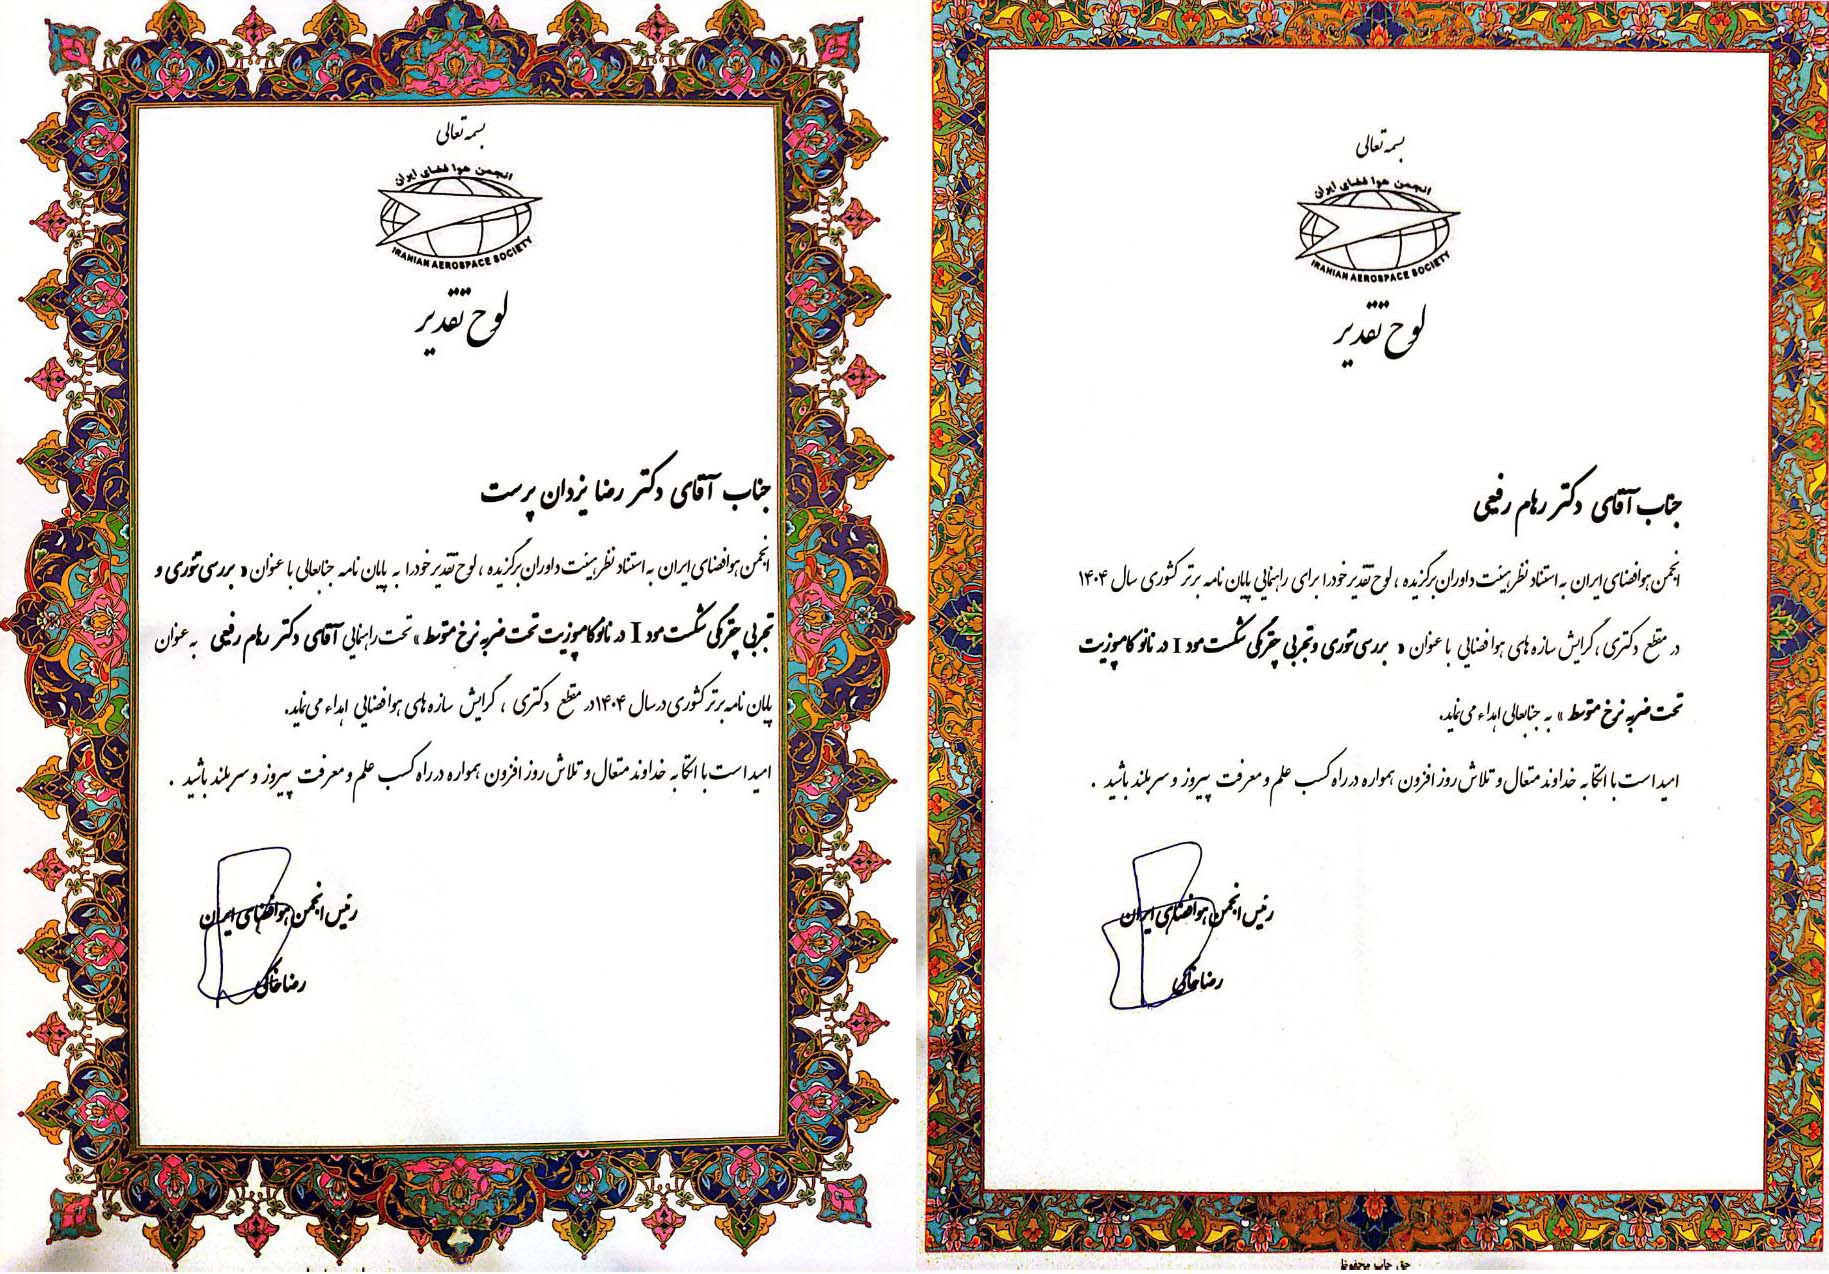 بسمه تعالی
انجمن هوا فضای ایران
IRANIAN AEROSPACE SOCIETY
لوح تقدیر
جناب آقای دکتر رضا یزدان پرست
انجمن هوافضای ایران به استناد نظر هیئت داوران برگزیده ، لوح تقدیر خود را به پایان نامه جنابعالی با عنوان « بررسی تئوری و
تجربی چقرمگی شکست مود I در نانوکامپوزیت تحت ضربه نرخ متوسط » تحت راهنمایی آقای دکتر رهام رفیعی به عنوان
پایان نامه برتر کشوری در سال ۱۴۰۴ در مقطع دکتری ، گرایش سازه های هوافضایی اهداء می نماید.
امید است با اتکا به خداوند متعال و تلاش روز افزون همواره در راه کسب علم و معرفت پیروز و سربلند باشید .
رئیس انجمن هوافضای ایران
رضا خاکی
بسمه تعالی
انجمن هوا فضای ایران
IRANIAN AEROSPACE SOCIETY
لوح تقدیر
جناب آقای دکتر رهام رفیعی
انجمن هوافضای ایران به استناد نظر هیئت داوران برگزیده ، لوح تقدیر خود را برای راهنمایی پایان نامه برتر کشوری سال ۱۴۰۴
در مقطع دکتری ، گرایش سازه های هوافضایی با عنوان « بررسی تئوری و تجربی چقرمگی شکست مود I در نانوکامپوزیت
تحت ضربه نرخ متوسط » به جنابعالی اهداء می نماید.
امید است با اتکا به خداوند متعال و تلاش روز افزون همواره در راه کسب علم و معرفت پیروز و سربلند باشید .
رئیس انجمن هوافضای ایران
رضا خاکی
حق چاپ محفوظ